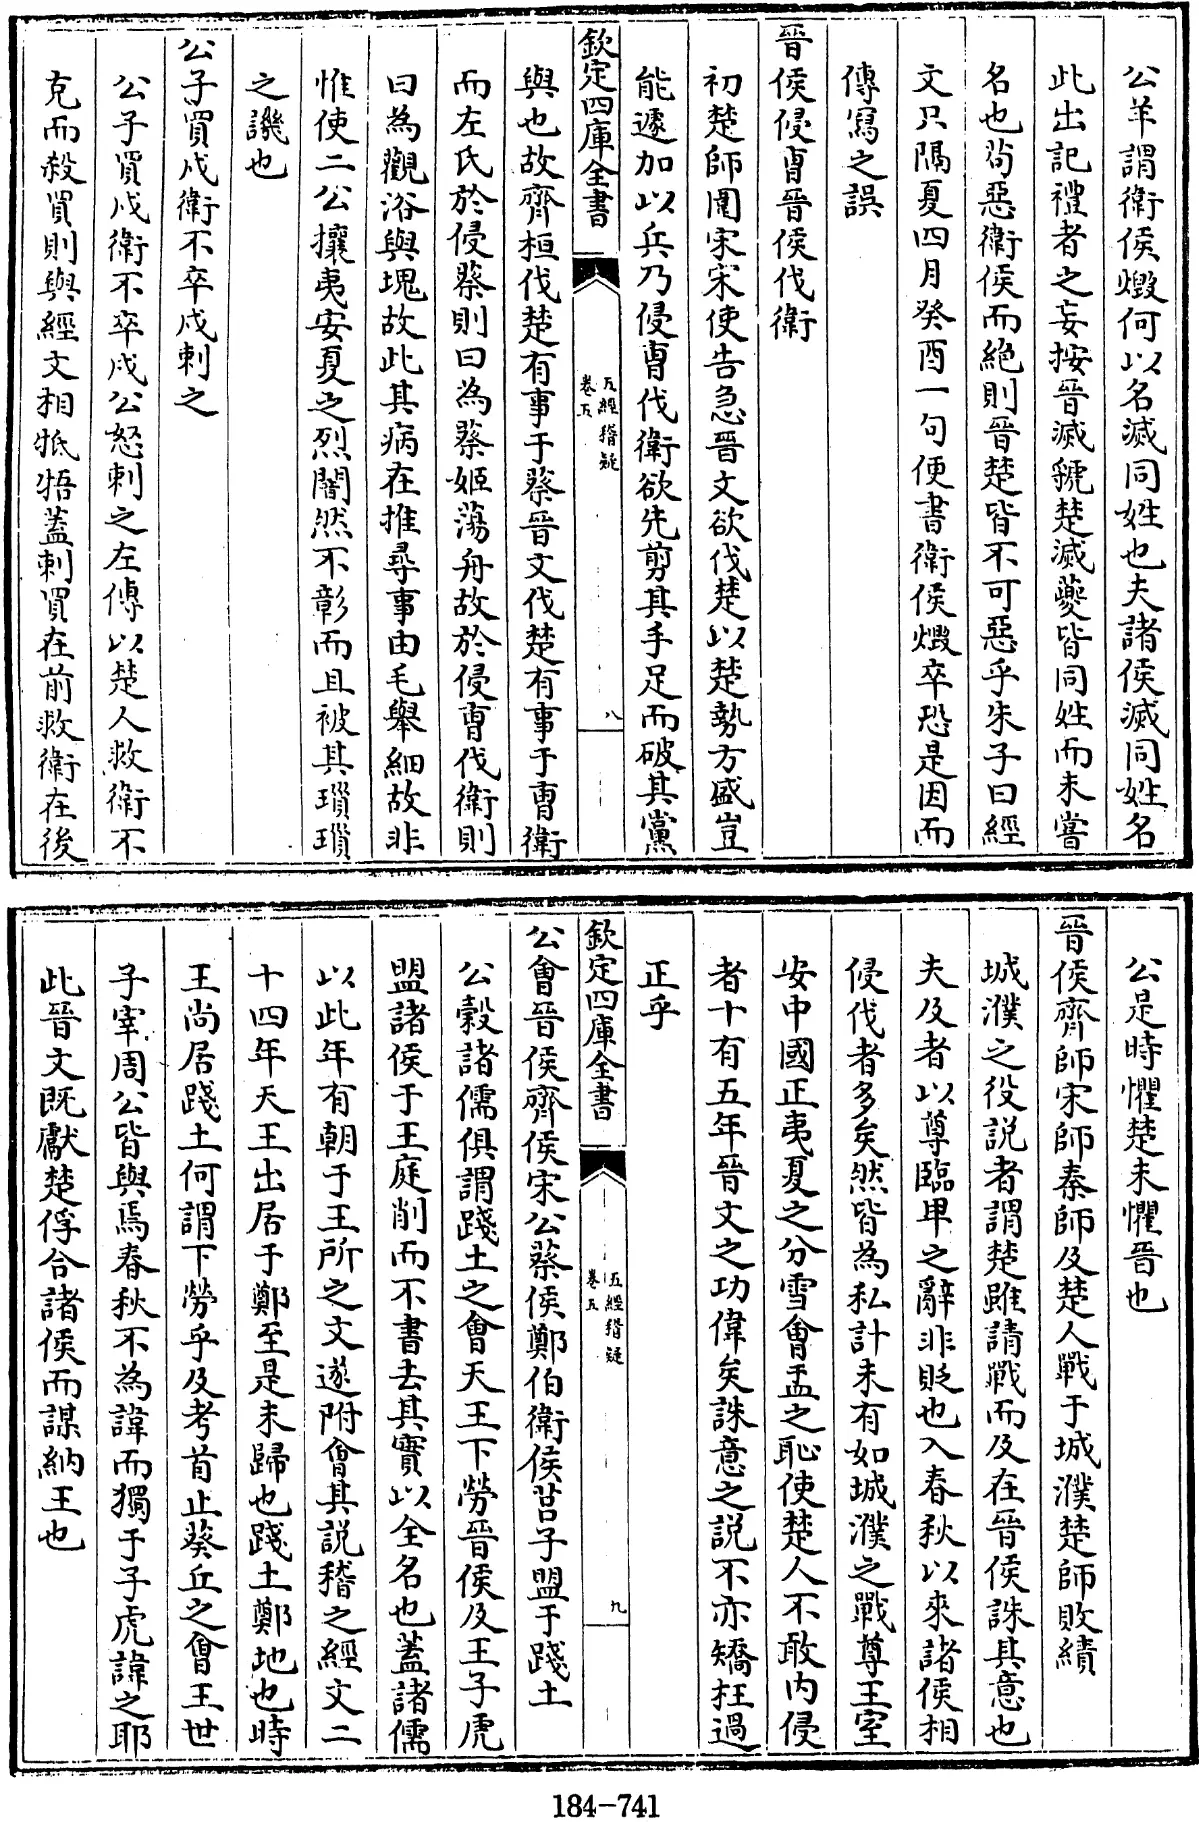 公羊謂衛侯燬何以名滅同姓也夫諸侯滅同姓名
此出記禮者之妄按晉滅虢楚滅夔皆同姓而未嘗
名也茍惡衛侯而絶則晉楚皆不可惡乎朱子曰經
文只隔夏四月癸酉一句便書衛侯燬卒恐是因而
傳寫之誤
晉侯侵曹晉侯伐衛
初楚師圍宋宋使告急晉文欲伐楚以楚勢方盛豈
能遽加以兵乃侵曹伐衛欲先剪其手足而破其黨
欽定四庫全書
五經稽疑
卷五
八
與也故齊桓伐楚有事于蔡晉文伐楚有事于曹衛
而左氏於侵蔡則曰為蔡姬蕩舟故於侵曹伐衛則
曰為觀浴與塊故此其病在推尋事由毛舉細故非
惟使二公攘夷安夏之烈闇然不彰而且被其瑣瑣
之譏也
公子買戍衛不卒戍刺之
公子買戍衛不卒戍公怒刺之左傳以楚人救衛不
克而殺買則與經文相牴牾蓋刺買在前救衛在後
公是時懼楚未懼晉也
晉侯齊師宋師秦師及楚人戰于城濮楚師敗績
城濮之役説者謂楚雖請戰而及在晉侯誅其意也
夫及者以尊臨卑之辭非貶也入春秋以來諸侯相
侵伐者多矣然皆為私計未有如城濮之戰尊王室
安中國正夷夏之分雪會盂之恥使楚人不敢内侵
者十有五年晉文之功偉矣誅意之説不亦矯枉過
正乎
欽定四庫全書
五經稽疑
卷五
九
公會晉侯齊侯宋公蔡侯鄭伯衛侯莒子盟于踐土
公穀諸儒俱謂踐土之會天王下勞晉侯及王子虎
盟諸侯于王庭削而不書去其實以全名也蓋諸儒
以此年有朝于王所之文遂附會其説稽之經文二
十四年天王出居于鄭至是未歸也踐土鄭地也時
王尚居踐土何謂下勞乎及考首止葵丘之會王世
子宰周公皆與焉春秋不為諱而獨于子虎諱之耶
此晉文既獻楚俘合諸侯而謀納王也
184-741